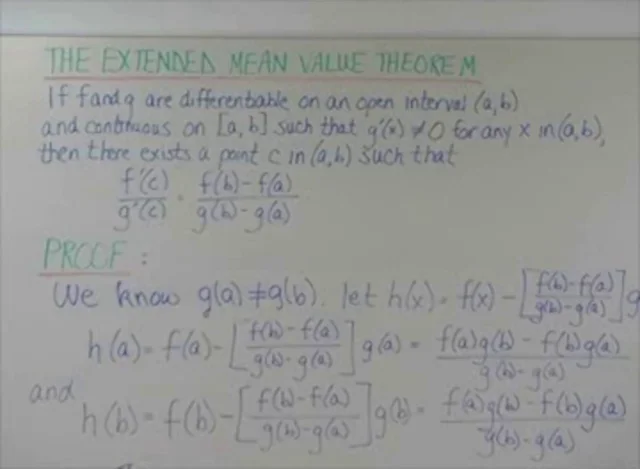 THE EXTENDED MEAN VALUE THEOREM
If f and g are differentiable on an open interval (a,b)
and continuous on [a,b] such that g'(x) ≠ 0 for any x in (a,b),
then there exists a point c in (a,b) such that
f'(c)/g'(c) = f(b)-f(a)/g(b)-g(a)
PROOF :
We know g(a) ≠ g(b). let h(x) = f(x) - [f(b)-f(a)/g(b)-g(a)]g
h(a) = f(a) - [f(b)-f(a)/g(b)-g(a)] g(a) = f(a)g(b) - f(b)g(a)/g(b)-g(a)
and
h(b) = f(b) - [f(b)-f(a)/g(b)-g(a)] g(b) = f(a)g(b) - f(b)g(a)/g(b)-g(a)